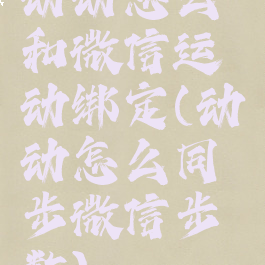 动动怎么
和微信运
动绑定(动
动怎么同
步微信步
数)